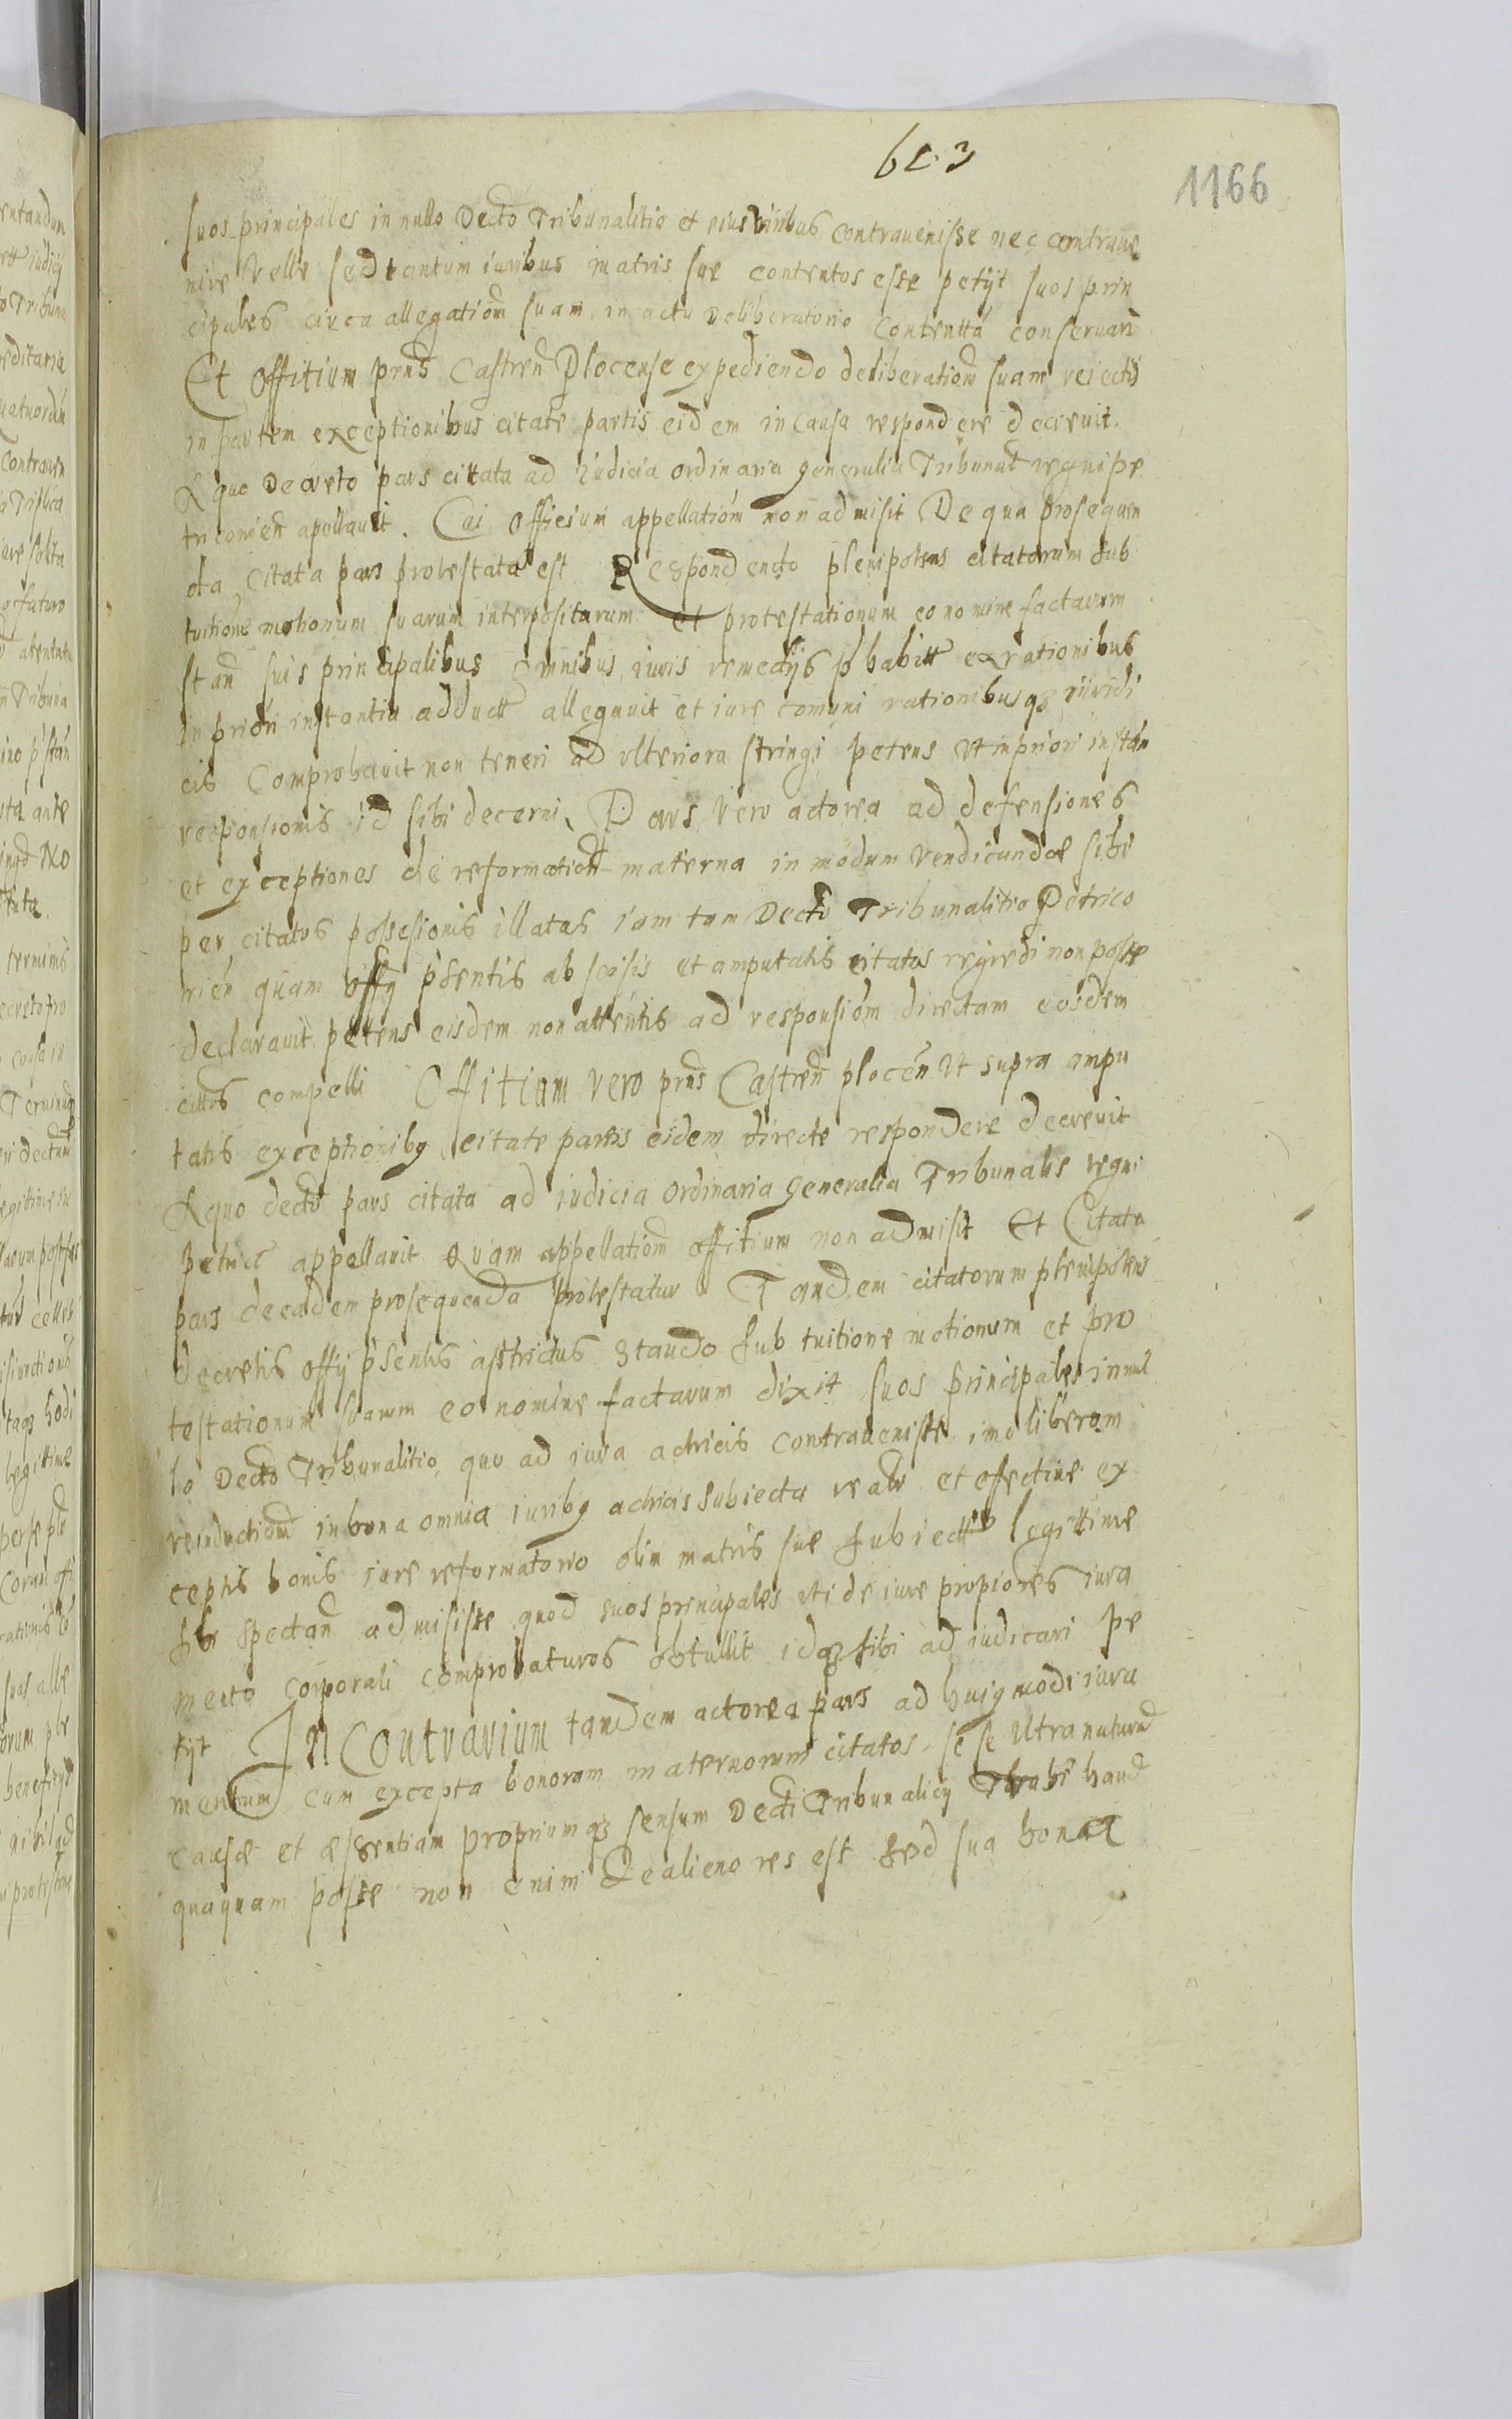 6C.3
1166
suos principales in nullo Decto Tribunalitio et eius viribus contrauenisse nec contraue
nire velle sed tantum iuribus matris sue contentos esse petijt suos prin
cipales circa allegatiom suam in actu deliberatorio contentta conseruari
Et Offitium prns Castren Plocense expediendo deliberatiom suam reiectis
in partem exceptionibus citate partis eidem in causa respondere decreuit.
A quo Decreto pars cittata ad iudicia ordinaria generalia Tribunal regni pe
tricouien apellauit. Cui Officium appellatiom non admisit De qua prosequen
da Citata pars protestata est Respondendo plenipotens citatorum sub
tuitione motionum suarum interpositarum et protestationum eo nomine factarum
stan suis principalibus omnibus iuris remedijs p habitt ex rationibus
in priori instantia adductt allegauit et iure comuni rationibusq3 iuridi
cis comprobauit non teneri ad ulteriora stringi petens ut in priori instan
responsionis id sibi decerni. Pars vero actorea ad defensiones
et exceptiones de reformation materna in modum vendicundae sibi
per citatos possesionis illatas iam tam Decto Tribunalitio Petrico
uien quam offy psentis abscisis et amputatis citatos regredi non posse
declarauit petens eisdem non attentis ad responsiom directam eosdem
cittos compelli Offitium vero prns Castren plocen ut supra ampu
tatis exceptionibq citate partis eidem directe respondere decreuit
A quo decto pars citata ad iudicia ordinaria generalia Tribunalis regni
petric appellauit Quam appellatiom offitium non admisit Et Citata
pars de eadem prosequenda protestatur Tandem citatorum plenipotens
decretis offy psentis astrictus stando sub tuitione motionum et pro
testationum suarum eo nomine factarum dixit suos principales in nul
lo Decto Tribunalitio quo ad iura actricis contrauenisse imo liberam
reinductiom in bona omnia iuribq actricis subiecta realr et effectiue ex
ceptis bonis iure reformatorio olim matris sue subiectt legittime
sibi spectan admisisse quod suos principales uti de iure propiores iura
mento corporali comprobaturos obtullit idq3 sibi adiudicari pe
tyt In Contrarium tandem actorea pars ad huiqmodi iura
mentum cum excepta bonorum maternorum citatos se se Ultra naturam
causae et aessentiam propriumq3 sensum Decti Tribunalicy Trahi haud
quaquam posse non enim de alieno res est sed sua bona